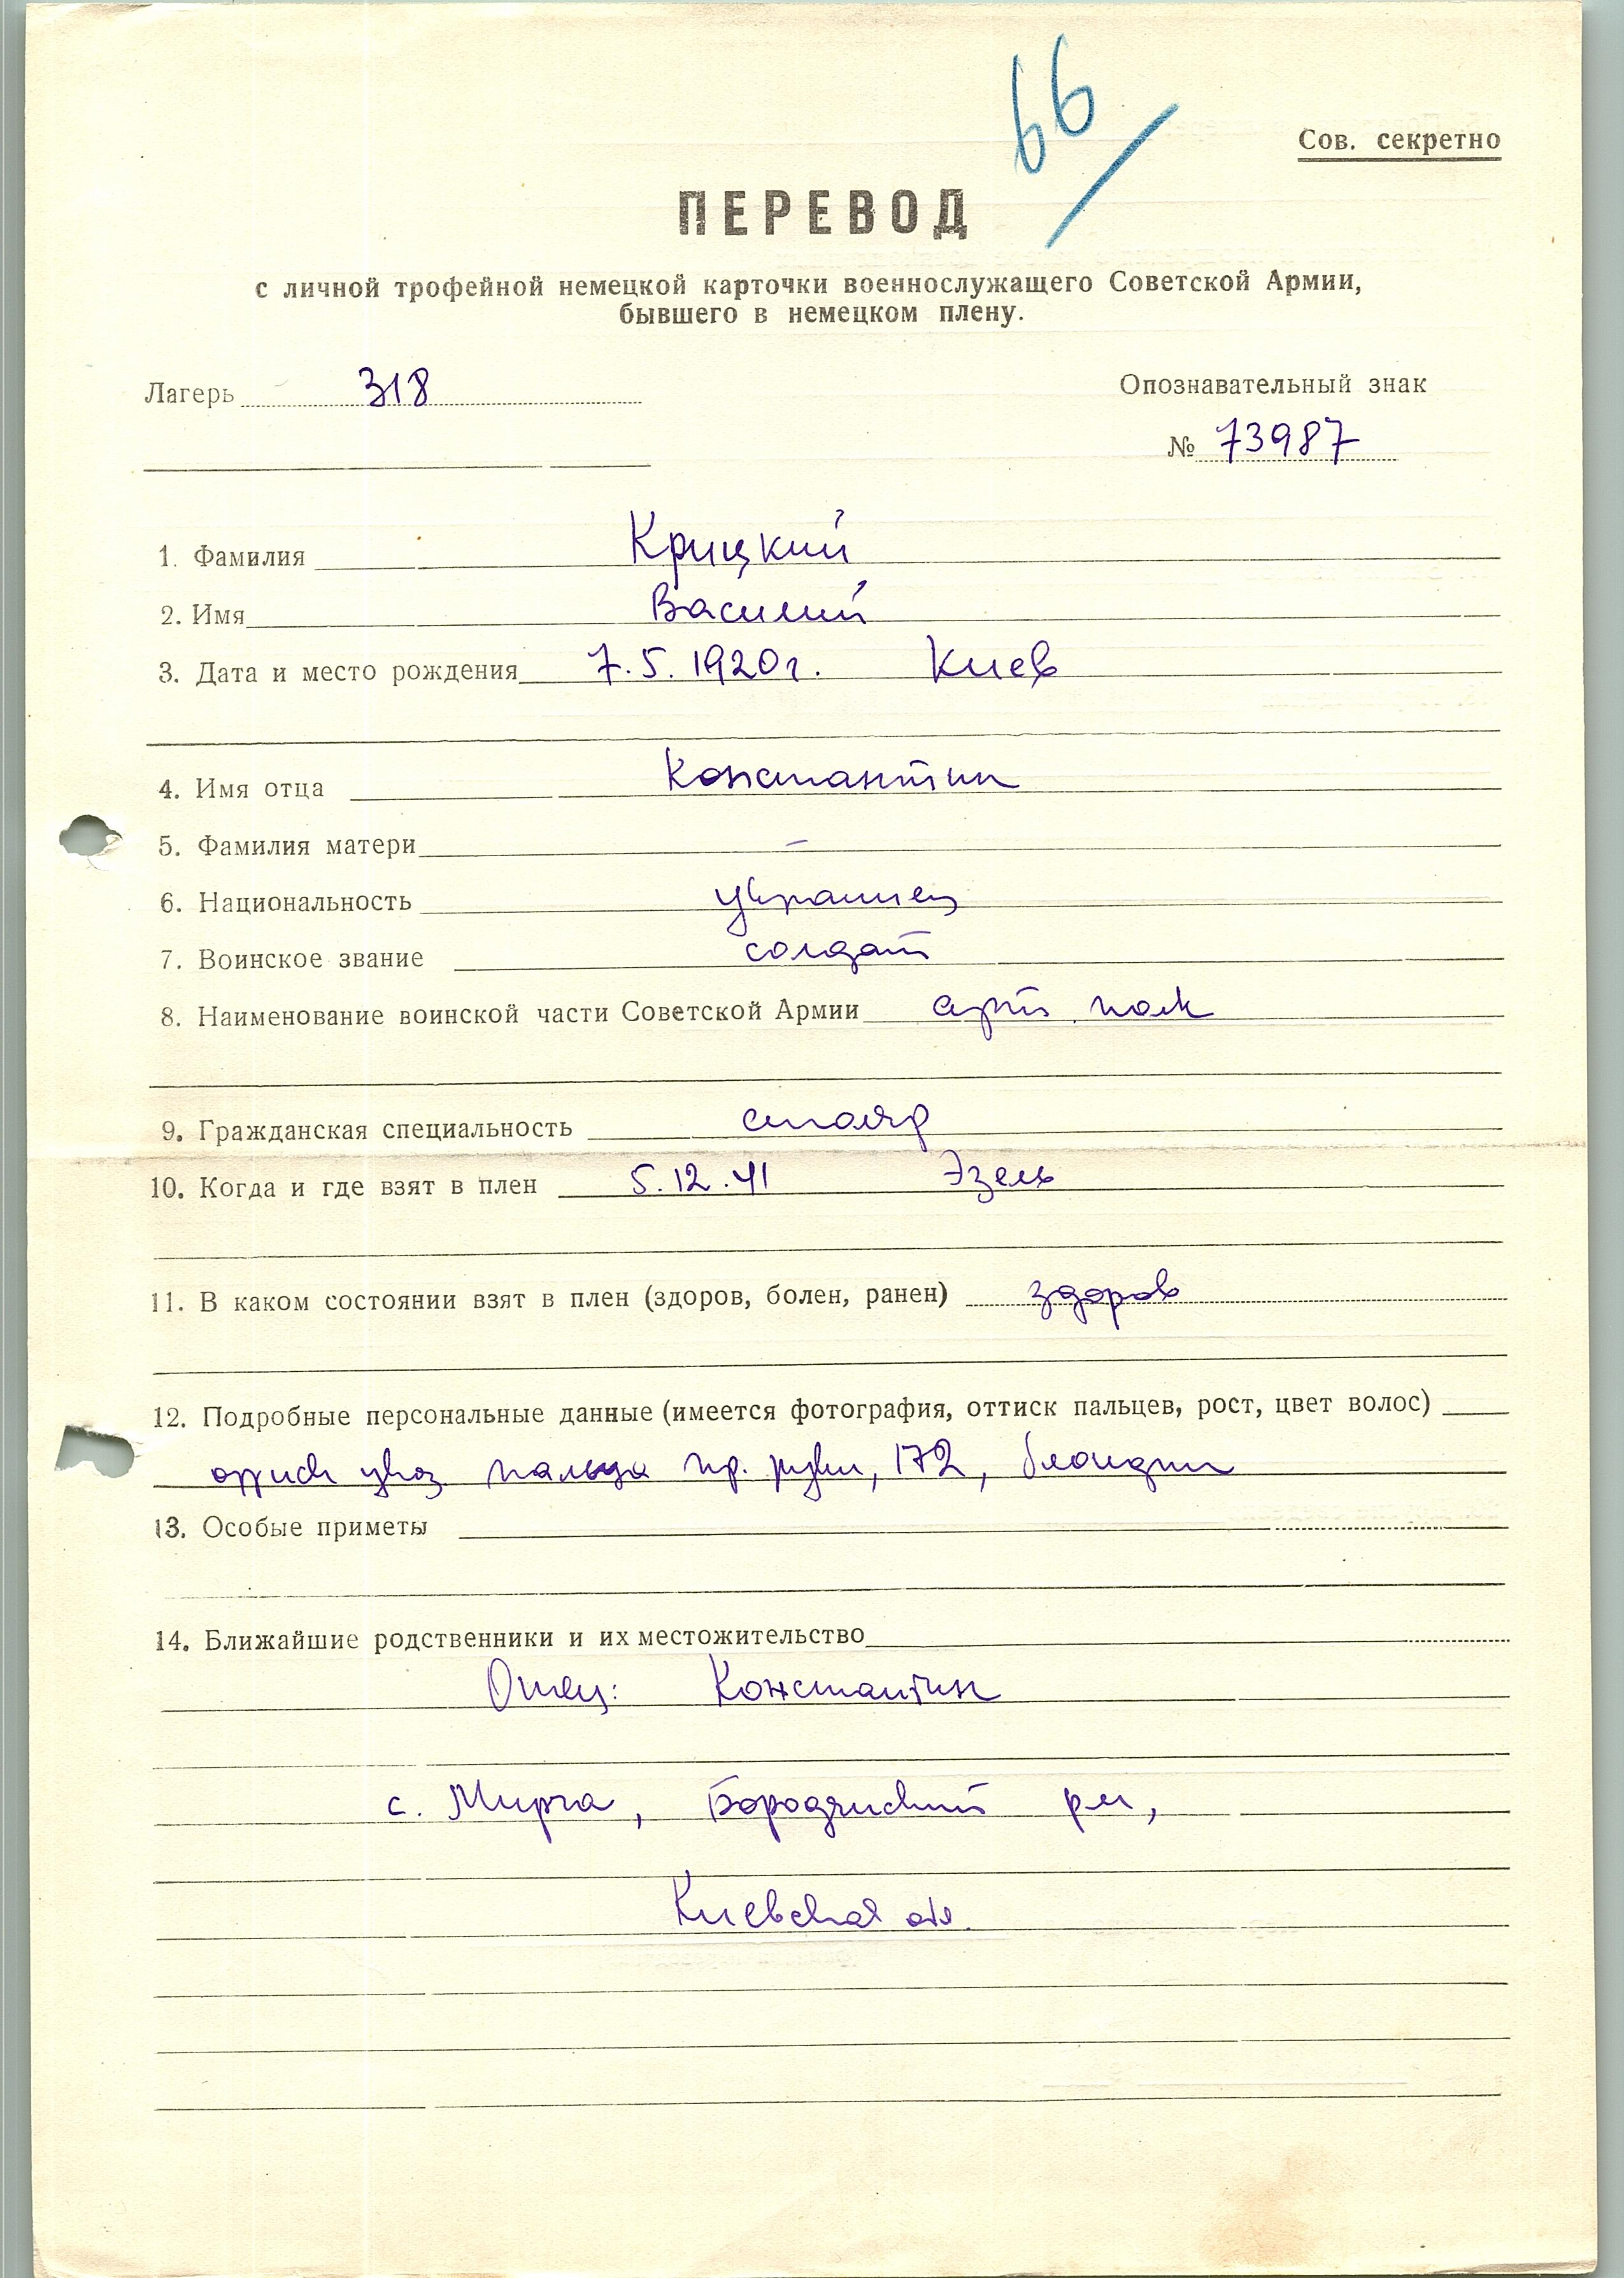 66
Сов. секретно
ПЕРЕВОД
с личной трофейной немецкой карточки военнослужащего Советской Армии,
бывшего в немецком плену.
Лагерь 318
Опознавательный знак
№ 73987
1. Фамилия Крицкий
2. Имя Василий
3. Дата и место рождения 7.5.1920г. Киев
4. Имя отца Константин
5. Фамилия матери –
6. Национальность украинец
7. Воинское звание солдат
8. Наименование воинской части Советской Армии арт. полк
9. Гражданская специальность столяр
10. Когда и где взят в плен 5.12.41 Эзель
11. В каком состоянии взят в плен (здоров, болен, ранен) здоров
12. Подробные персональные данные (имеется фотография, оттиск пальцев, рост, цвет волос)
оттиск указ. пальца пр. руки, 172, блондин
13. Особые приметы
14. Ближайшие родственники и их местожительство
Отец: Константин
с. Мирча, Бородянский р-н,
Киевская обл.